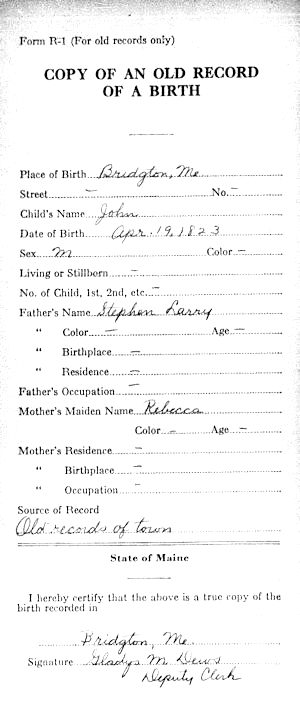 Form R-1 (For old records only)
COPY OF AN OLD RECORD
OF A BIRTH
Place of Birth Bridgton, Me
Street – No. –
Child's Name John
Date of Birth Apr. 19, 1823
Sex M Color –
Living or Stillborn –
No. of Child, 1st, 2nd, etc. –
Father's Name Stephen Larry
" Color – Age –
" Birthplace –
" Residence –
Father's Occupation –
Mother's Maiden Name Rebecca
Color – Age –
Mother's Residence –
" Birthplace –
" Occupation –
Source of Record
Old records of town
State of Maine
I hereby certify that the above is a true copy of the
birth recorded in
Bridgton, Me
Signature Gladys M. Dews
Deputy Clerk